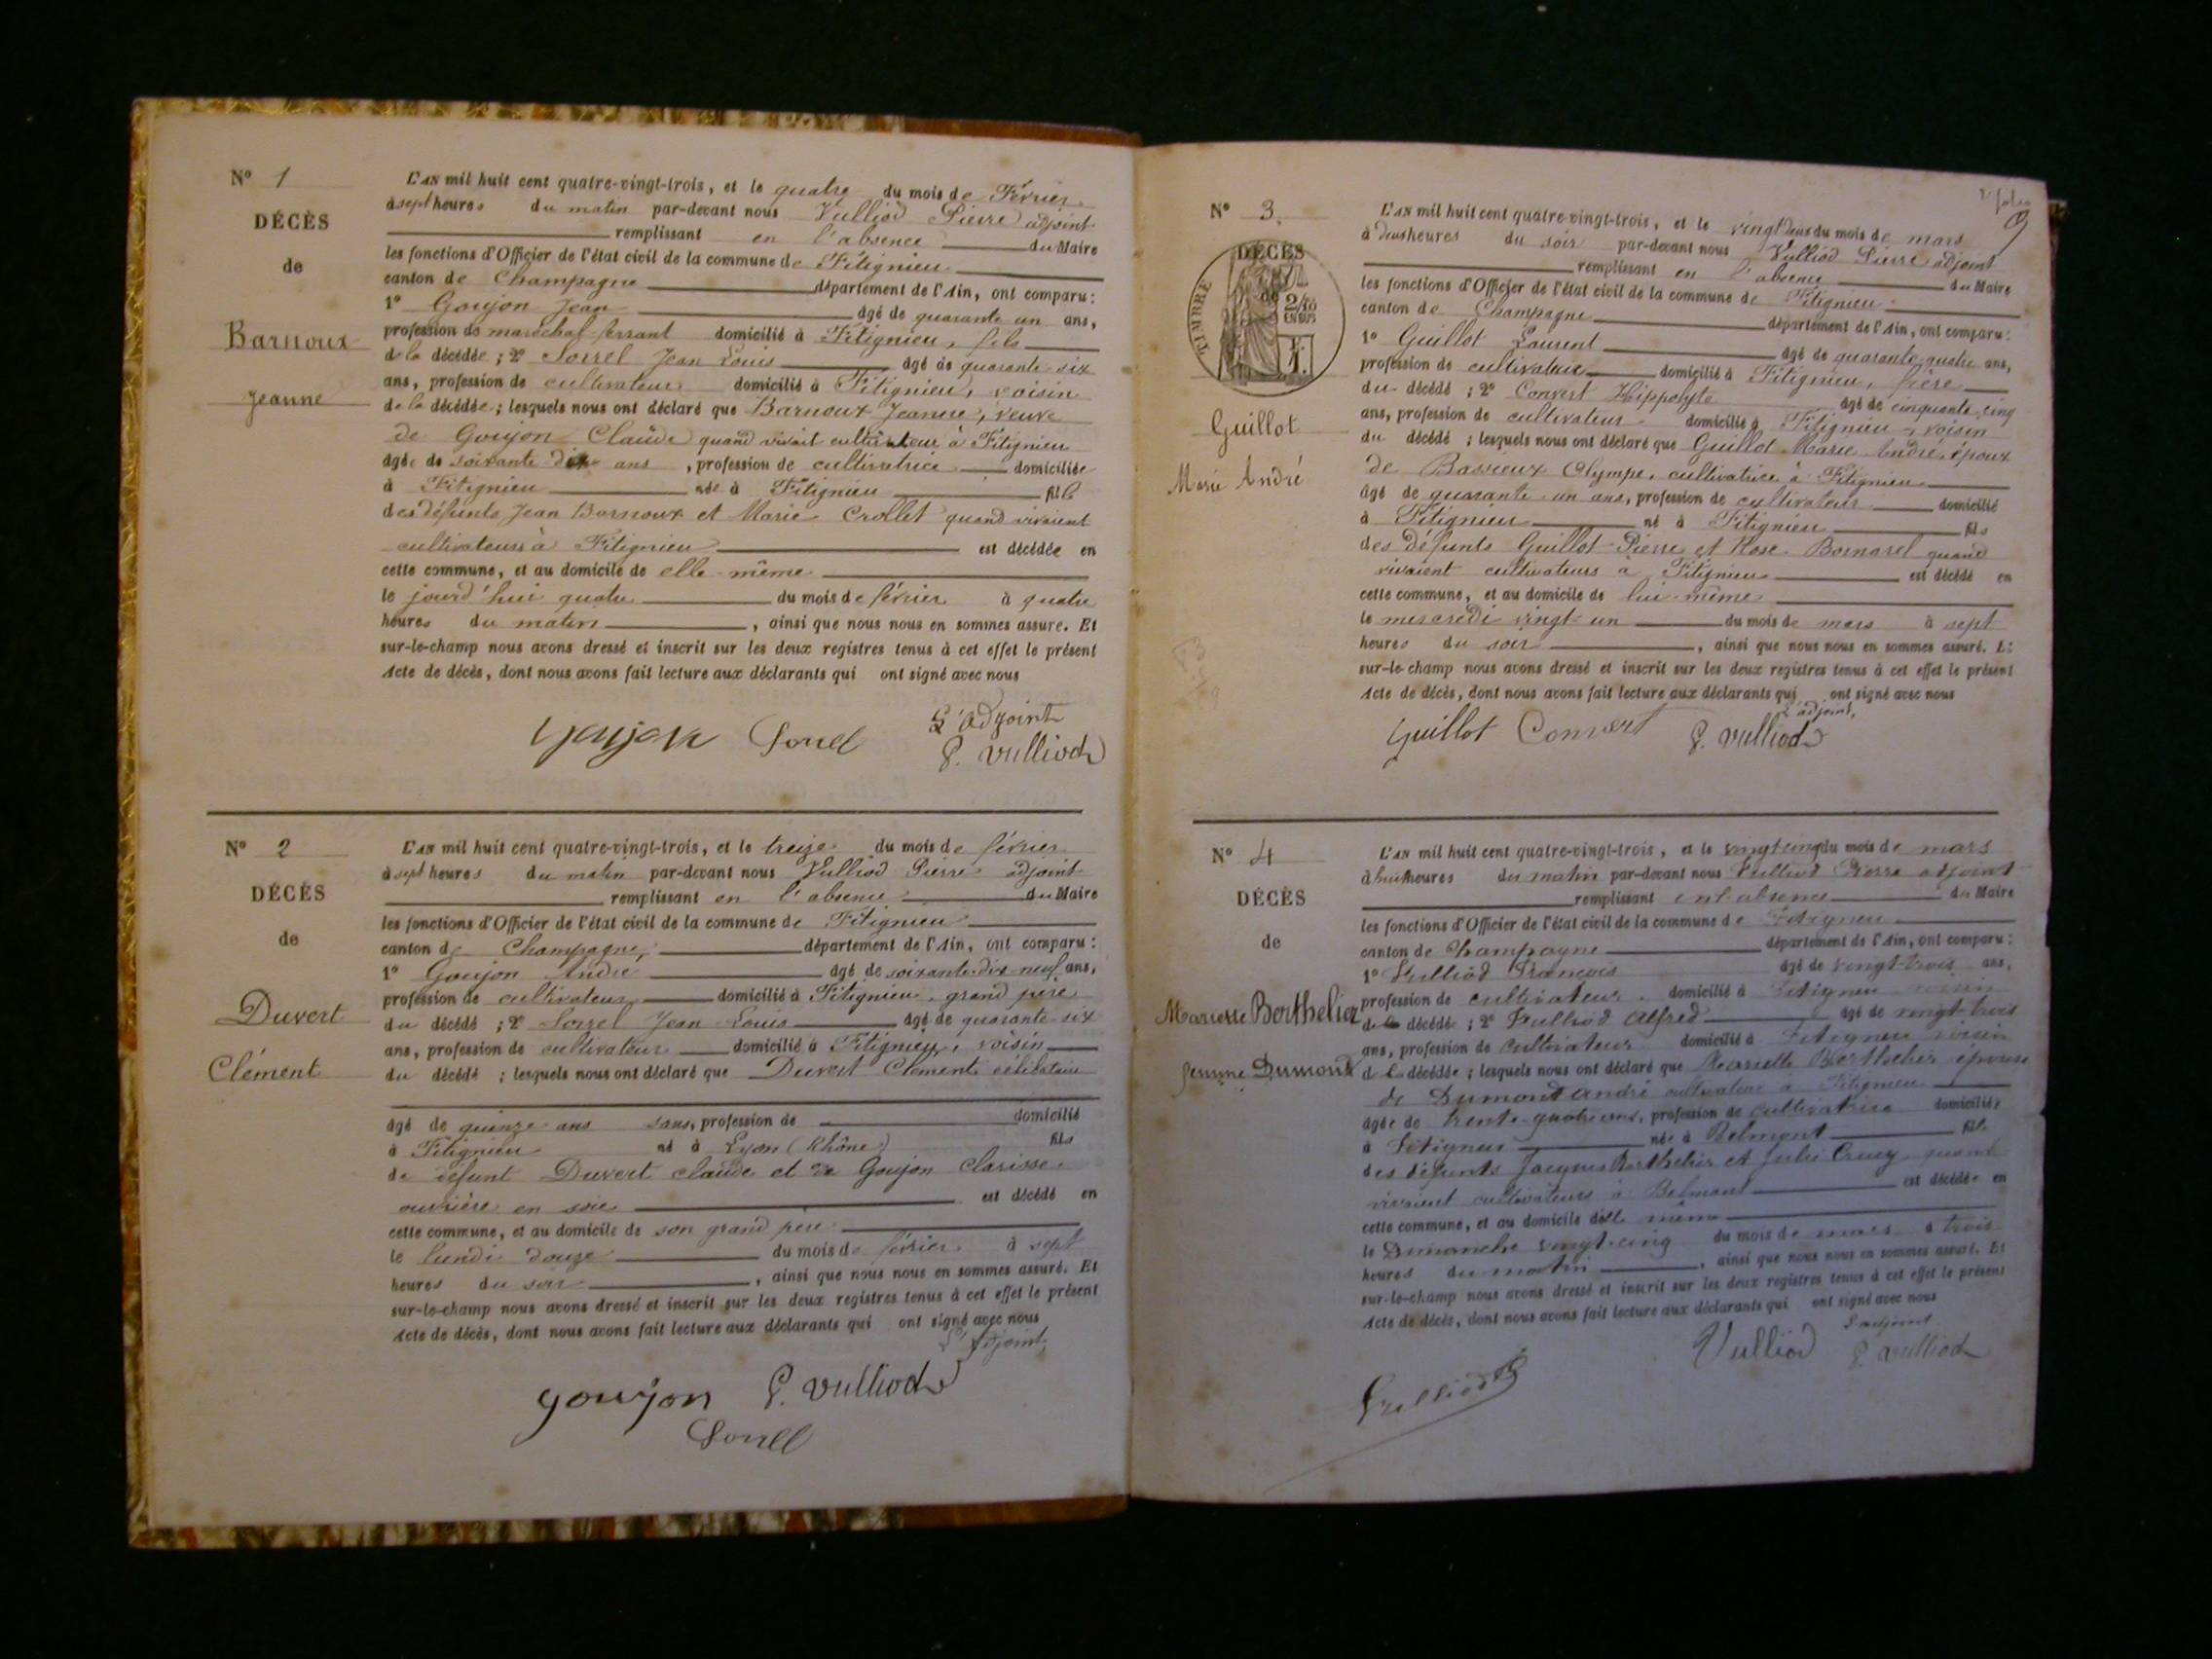 N° 1
DÉCÈS
de
Barnoux
Jeanne
L'AN mil huit cent quatre-vingt-trois, et le quatre du mois de Février
à sept heures du matin par-devant nous Vulliod Pierre adjoint
remplissant en l'absence du Maire
les fonctions d'Officier de l'état civil de la commune de Fitignieu
canton de Champagne département de l'Ain, ont comparu :
1° Goujon Jean âgé de quarante un ans,
profession de maréchal ferrant domicilié à Fitignieu, fils
de la décédée ; 2° Sorrel Jean Louis âgé de quarante six
ans, profession de cultivateur domicilié à Fitignieu, voisin
de la décédée ; lesquels nous ont déclaré que Barnoux Jeanne, veuve
de Goujon Claude quand vivait cultivateur à Fitignieu
âgée de soixante dix ans, profession de cultivatrice domiciliée
à Fitignieu née à Fitignieu fille
des défunts Jean Barnoux et Marie Crollet quand vivaient
cultivateurs à Fitignieu est décédée en
cette commune, et au domicile de elle-même
le jourd'hui quatre du mois de février à quatre
heures du matin, ainsi que nous nous en sommes assuré. Et
sur-le-champ nous avons dressé et inscrit sur les deux registres tenus à cet effet le présent
Acte de décès, dont nous avons fait lecture aux déclarants qui ont signé avec nous
L'adjoint
Goujon Sorrel P. Vulliod
N° 2
DÉCÈS
de
Duvert
Clément
L'AN mil huit cent quatre-vingt-trois, et le treize du mois de février
à sept heures du matin par-devant nous Vulliod Pierre adjoint
remplissant en l'absence du Maire
les fonctions d'Officier de l'état civil de la commune de Fitignieu
canton de Champagne, département de l'Ain, ont comparu :
1° Goujon André âgé de soixante-dix-neuf ans,
profession de cultivateur domicilié à Fitignieu, grand père
du décédé ; 2° Sorrel Jean-Louis âgé de quarante-six
ans, profession de cultivateur domicilié à Fitignieu, voisin
du décédé ; lesquels nous ont déclaré que Duvert Clément célibataire
âgé de quinze ans sans, profession de domicilié
à Fitignieu né à Lyon (Rhône) fils
de défunt Duvert Claude et de Goujon Clarisse
ouvrière en soie est décédé en
cette commune, et au domicile de son grand père
le lundi douze du mois de février à sept
heures du soir, ainsi que nous nous en sommes assuré. Et
sur-le-champ nous avons dressé et inscrit sur les deux registres tenus à cet effet le présent
Acte de décès, dont nous avons fait lecture aux déclarants qui ont signé avec nous
L'adjoint,
Goujon P. Vulliod
Sorrel
2e folio
N° 3
DÉCÈS
TIMBRE
de
2/10
EN SUS
1.
Guillot
Marie André
L'AN mil huit cent quatre-vingt-trois, et le vingt deux du mois de mars
à deux heures du soir par-devant nous Vulliod Pierre adjoint
remplissant en l'absence du Maire
les fonctions d'Officier de l'état civil de la commune de Fitignieu
canton de Champagne département de l'Ain, ont comparu :
1° Guillot Laurent âgé de quarante-quatre ans,
profession de cultivateur domicilié à Fitignieu, frère
du décédé ; 2° Convert Hippolyte âgé de cinquante cinq
ans, profession de cultivateur domicilié à Fitignieu, voisin
du décédé ; lesquels nous ont déclaré que Guillot Marie André, époux
de Bassieux Olympe, cultivatrice à Fitignieu
âgé de quarante-un ans, profession de cultivateur domicilié
à Fitignieu né à Fitignieu fils
des défunts Guillot Pierre et Rose Bornarel quand
vivaient cultivateurs à Fitignieu est décédé en
cette commune, et au domicile de lui-même
le mercredi vingt-un du mois de mars à sept
heures du soir, ainsi que nous nous en sommes assuré. Et
sur-le-champ nous avons dressé et inscrit sur les deux registres tenus à cet effet le présent
Acte de décès, dont nous avons fait lecture aux déclarants qui ont signé avec nous
L'adjoint,
Guillot Convert P. Vulliod
N° 4
DÉCÈS
de
Mariette Berthelier
femme Dumont
L'AN mil huit cent quatre-vingt-trois, et le vingt cinq du mois de mars
à huit heures du matin par-devant nous Vulliod Pierre adjoint
remplissant en l'absence du Maire
les fonctions d'Officier de l'état civil de la commune de Fitignieu
canton de Champagne département de l'Ain, ont comparu :
1° Vulliod François âgé de vingt-trois ans,
profession de cultivateur domicilié à Fitignieu voisin
de la décédée ; 2° Vulliod Alfred âgé de vingt-trois
ans, profession de cultivateur domicilié à Fitignieu voisin
de la décédée ; lesquels nous ont déclaré que Mariette Berthelier épouse
de Dumont André cultivateur à Fitignieu
âgée de trente-quatre ans, profession de cultivatrice domiciliée
à Fitignieu née à Belmont fille
des défunts Jacques Berthelier et Julie Cruey quand
vivaient cultivateurs à Belmont est décédée en
cette commune, et au domicile d'elle même
le Dimanche vingt-cinq du mois de mars à trois
heures du matin, ainsi que nous nous en sommes assuré. Et
sur-le-champ nous avons dressé et inscrit sur les deux registres tenus à cet effet le présent
Acte de décès, dont nous avons fait lecture aux déclarants qui ont signé avec nous
L'adjoint
Vulliod P. Vulliod
Vulliod